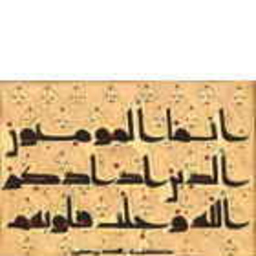 انما المومنون
الذين اذا ذكر
الله وجلت قلوبهم